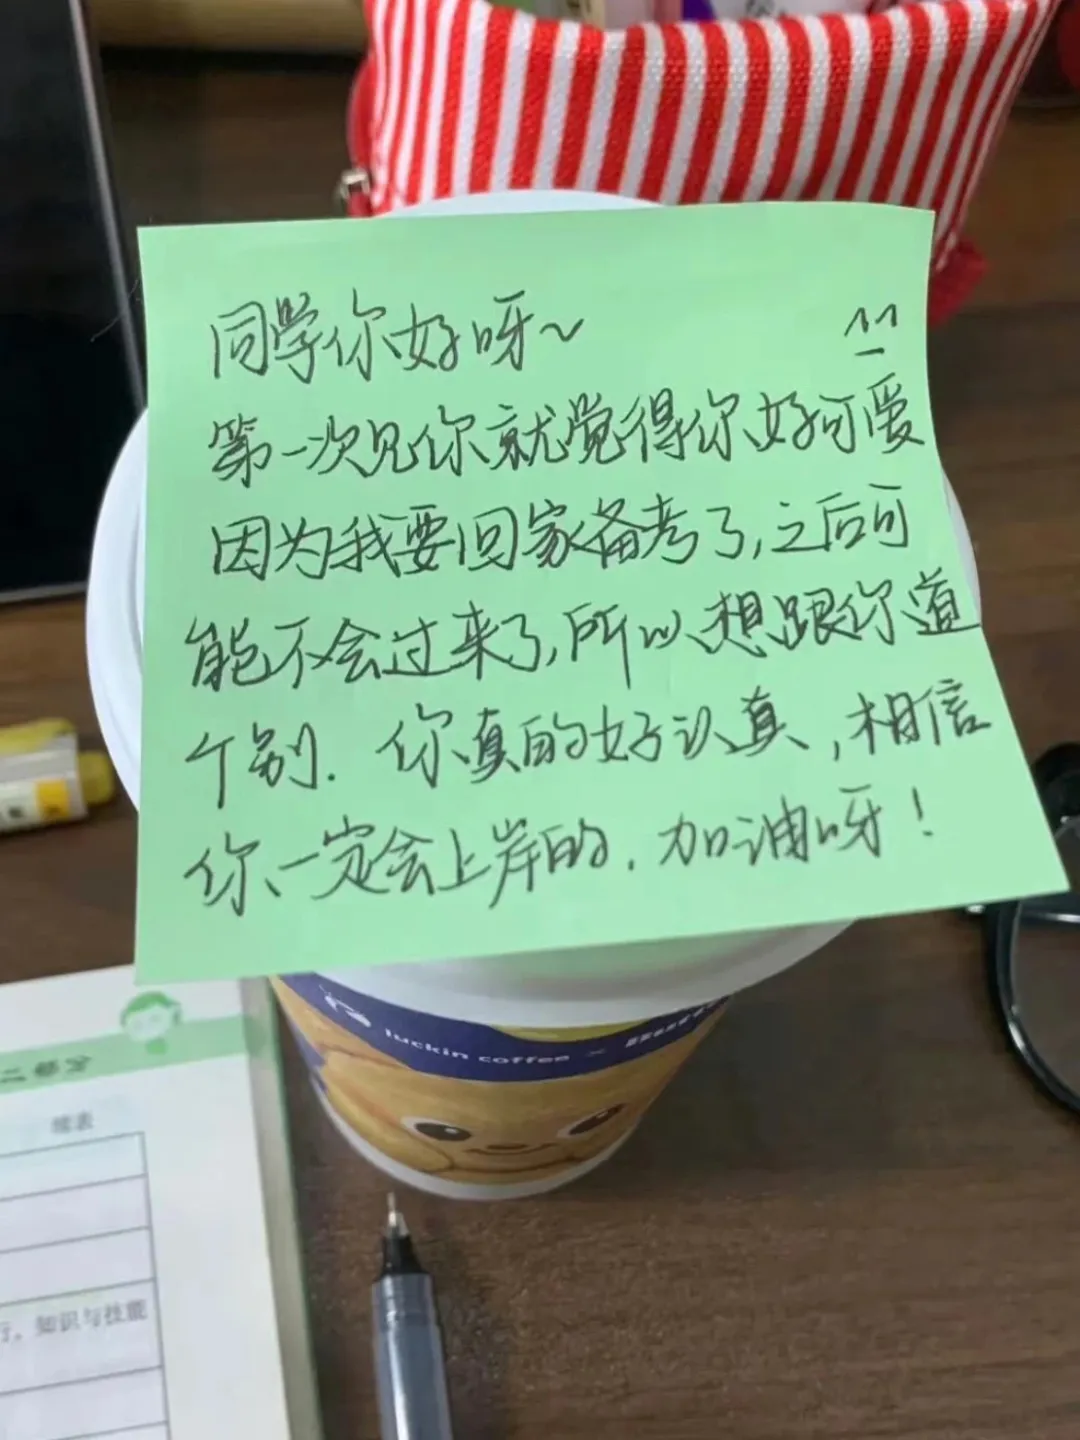 同学你好呀~
第一次见你就觉得你好可爱
因为我要回家备考了,之后可
能不会过来了,所以想跟你道
个别. 你真的好认真,相信
你一定会上岸的. 加油呀!
luckin coffee ×
续表
行,知识与技能